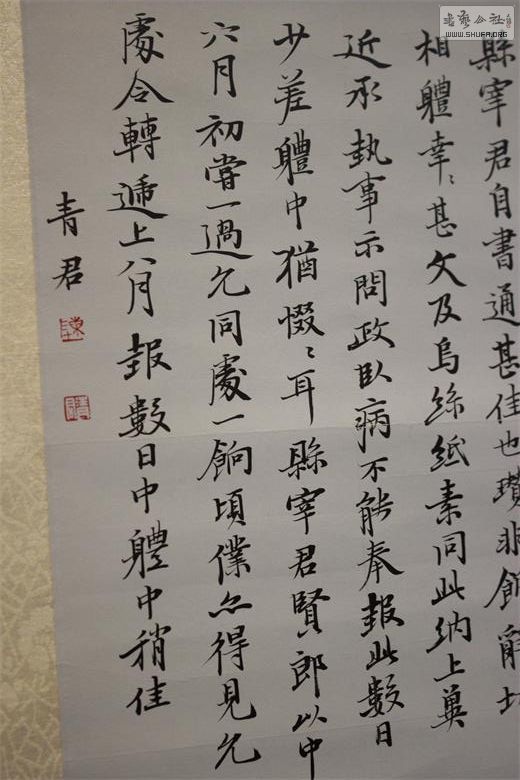 縣宰君自書通甚佳也瓚非飾辭
相軆幸〻甚文及烏絲紙素同此納上冀
近承執事示問政卧病不能奉報此數日
少差軆中猶惙〻耳縣宰君賢郎以中
六月初嘗一過允同處一餉頃僕亦得見允
處令轉遞上八月報數日中軆中稍佳
青君
書藝公社
WWW.SHUFA.ORG